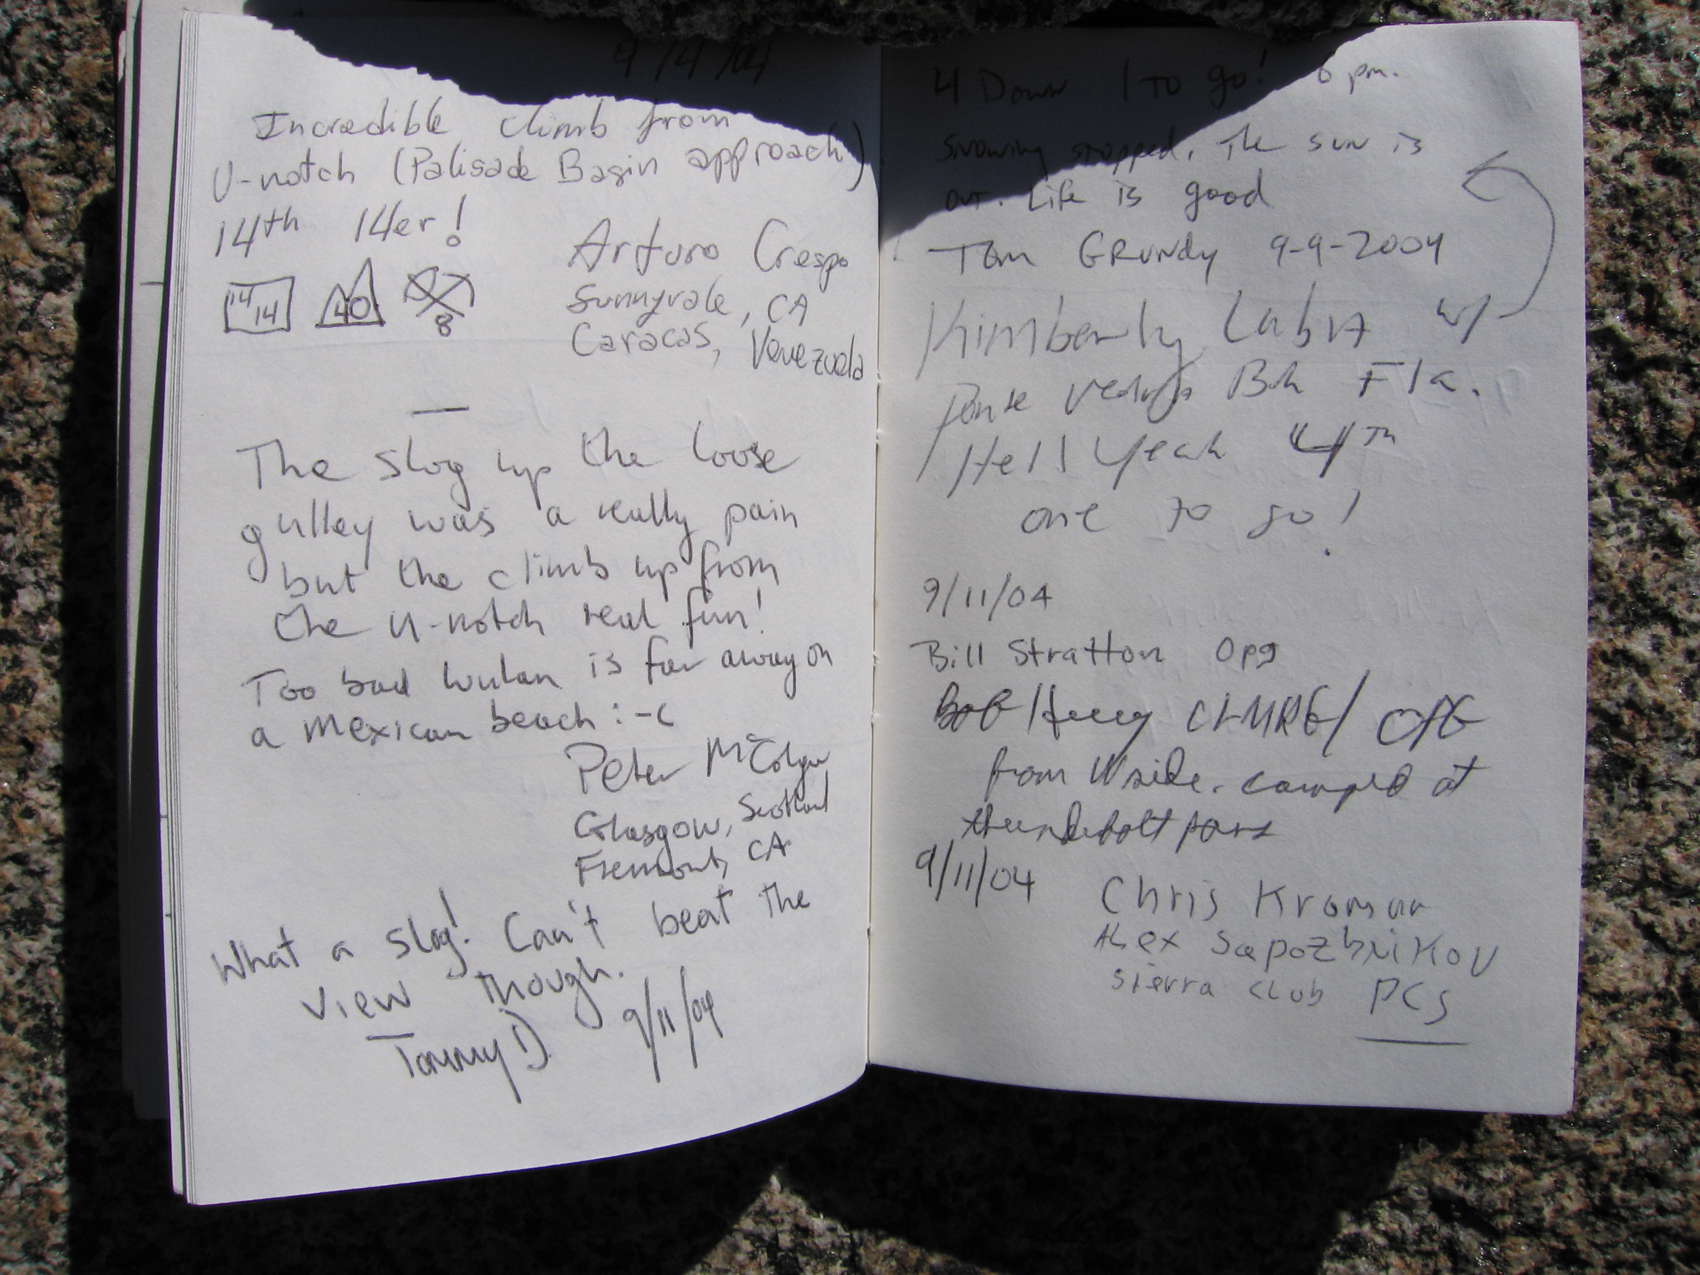 9/4/04
Incredible climb from
U-notch (Palisade Basin approach)
14th 14er!
14/14 40 8
Arturo Crespo
Sunnyvale, CA
Caracas, Venezuela
The slog up the loose
gulley was a really pain
but the climb up from
the U-notch real fun!
Too bad is far away on
a mexican beach :-(
Peter
Glasgow, Scotland
Fremont, CA
What a slog! Can't beat the
view though.
Tommy D. 9/11/04
4 Down 1 to go! 6 pm.
snowing stopped. The sun is
out. Life is good
Tom Grundy 9-9-2004
Kimberly w/
Ponte Vedra Bch Fla.
Hell Yeah 4th
one to go!
9/11/04
Bill Stratton OPG
Bob
from W side. camped at
thunderbolt pass
9/11/04
Chris Kramar
Alex Sapozhnikov
Sierra Club PCS